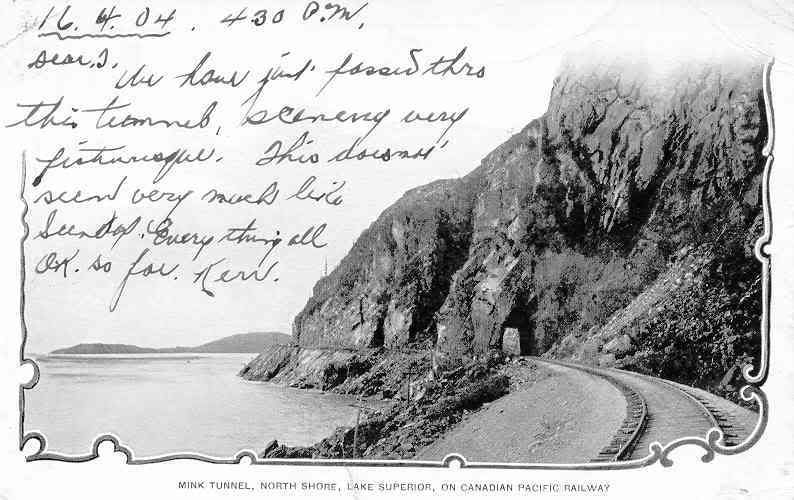 16.4.04. 4.30 P.M.
Dear J.
We have just passed thro
this tunnel, scenery very
picturesque. This doesnot
seem very much like
Sunday. Every thing all
OK. so far. Kerr.
MINK TUNNEL, NORTH SHORE, LAKE SUPERIOR, ON CANADIAN PACIFIC RAILWAY